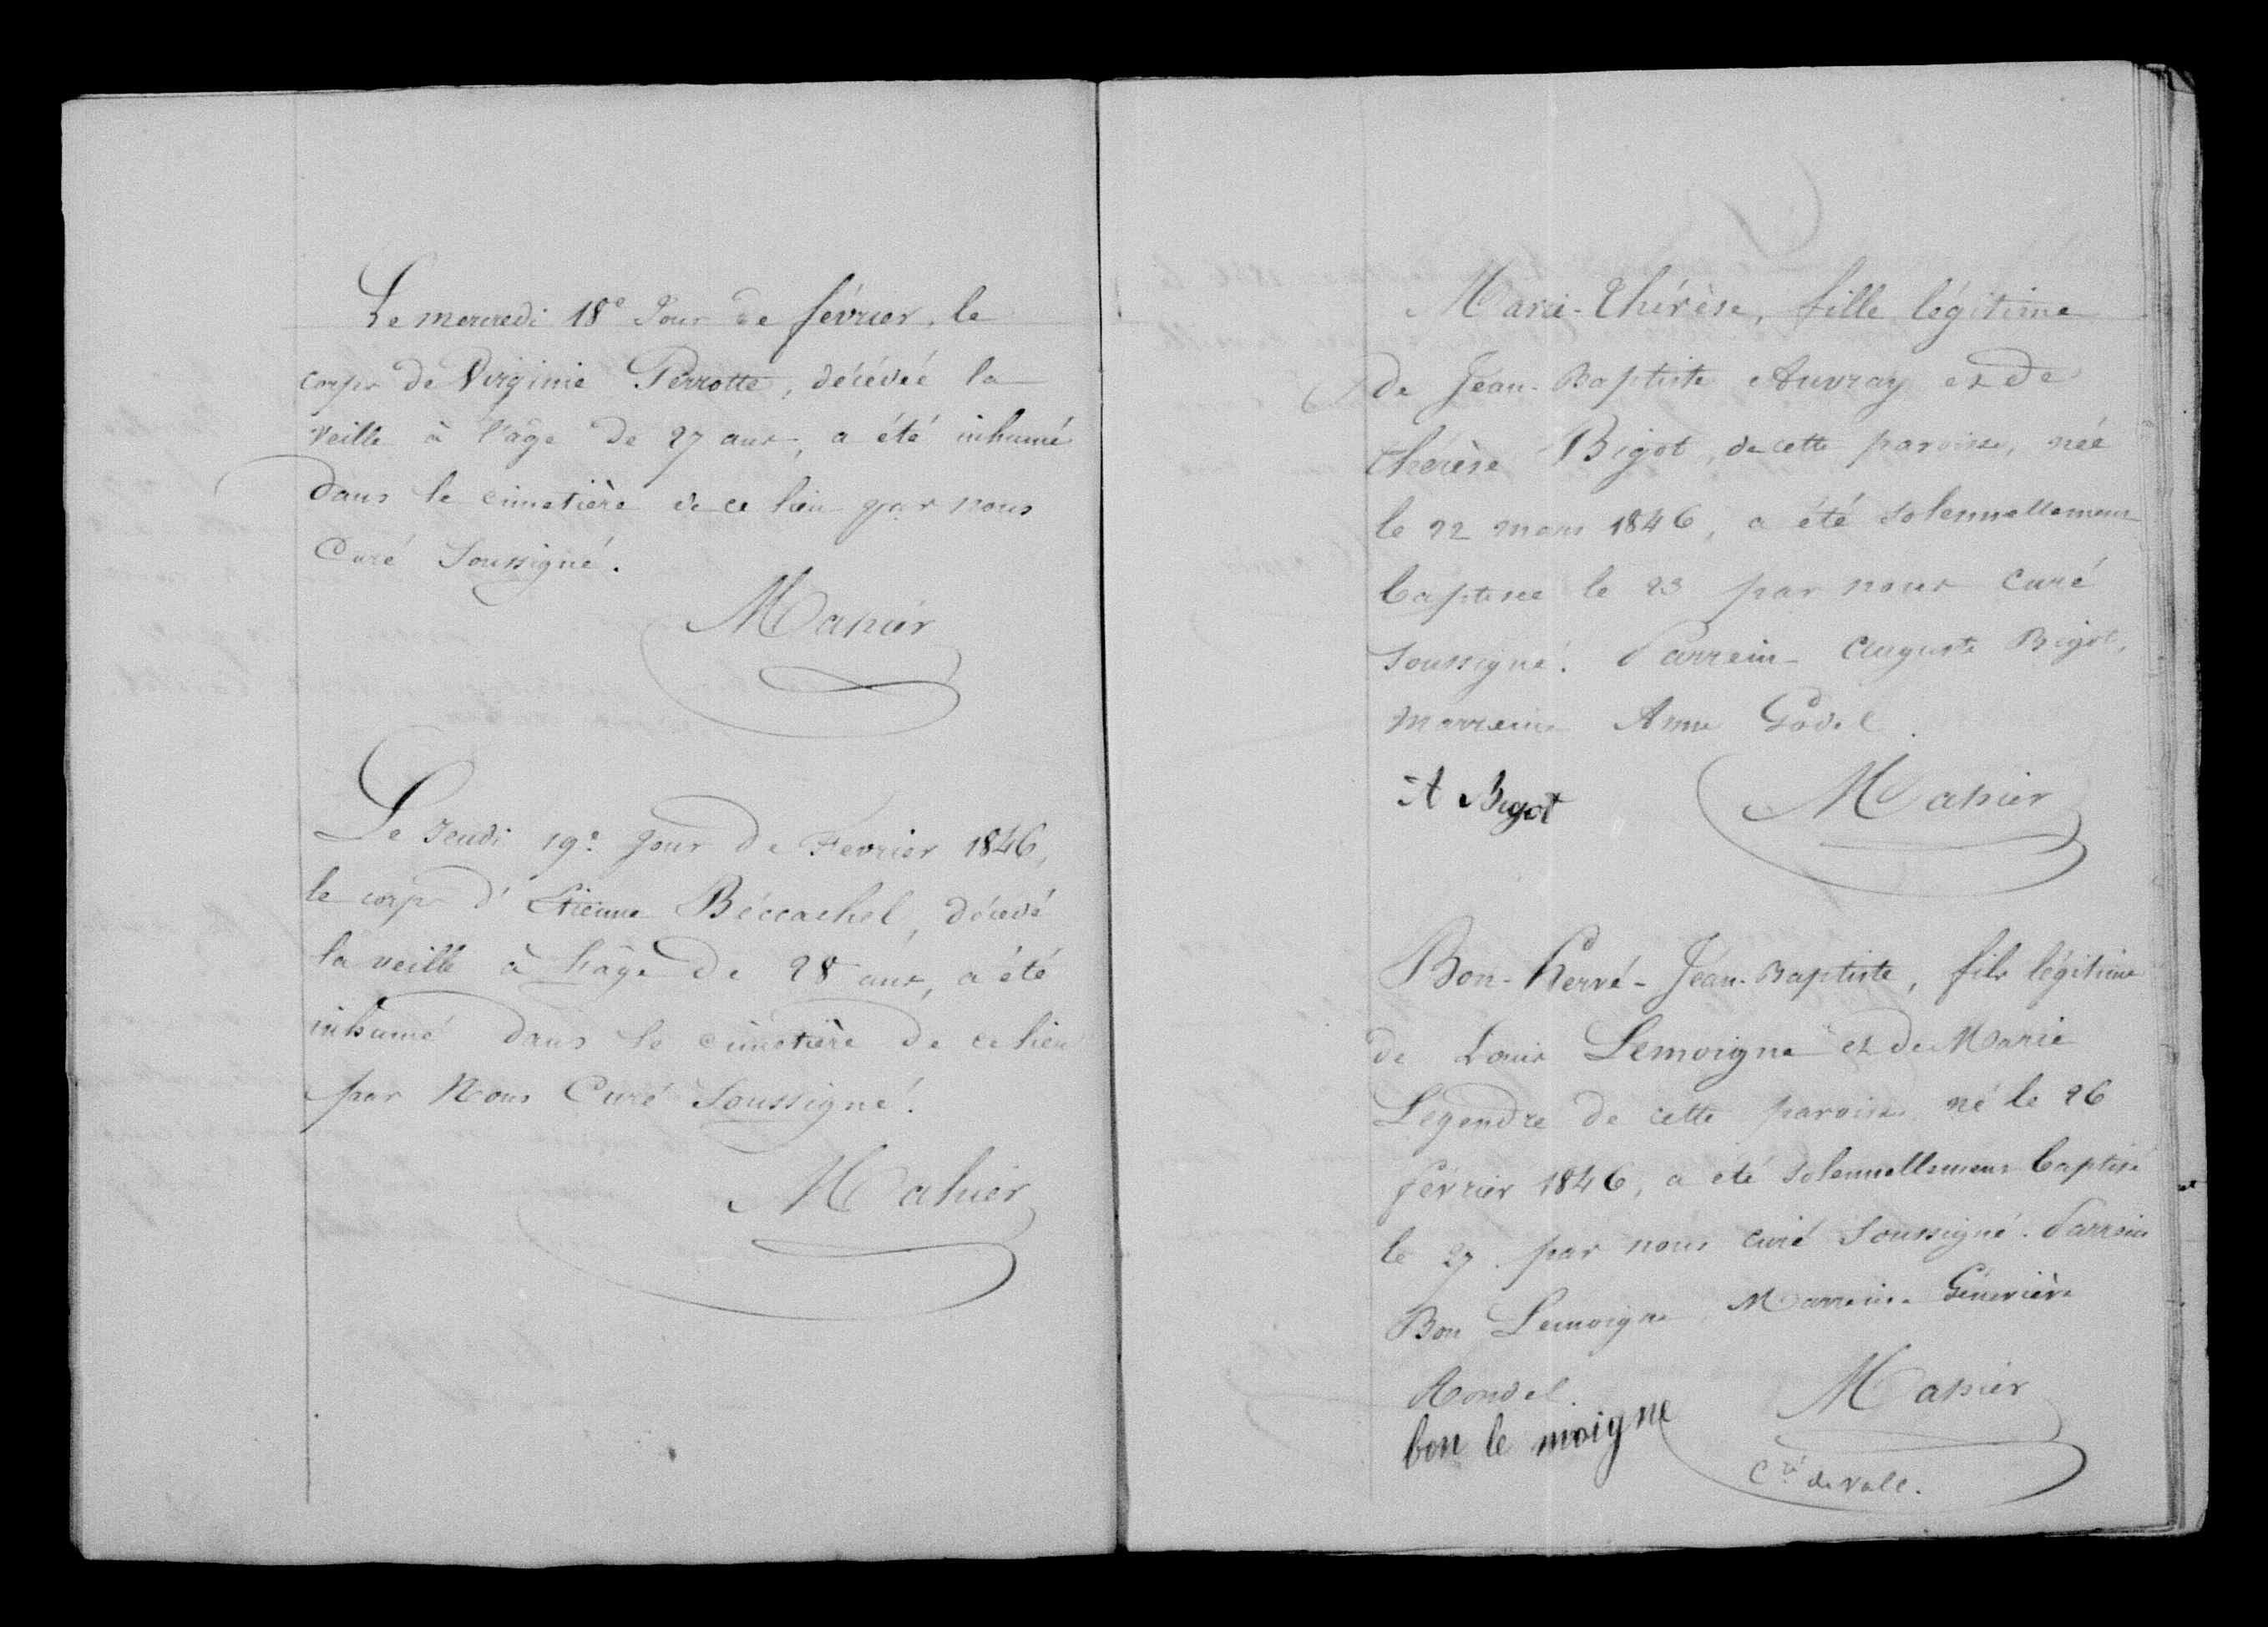 Le mercredi 18e Jour de février, le
corps de Virginie Perrotte, décédée la
veille à l'âge de 27 ans, a été inhumé
dans le cimetière de ce lieu par nous
Curé Soussigné.
Mahier
Le Jeudi 19e jour de Février 1846,
le corps d'Etienne Béccachel, décédé
la veille à l'âge de 28 ans, a été
inhumé dans le cimetière de ce lieu
par Nous Curé Soussigné.
Mahier
Marie-Thérèse, fille légitime
de Jean-Baptiste Auvray et de
thérèse Bigot, de cette paroisse, née
le 22 mars 1846, a été solennellement
baptisée le 23 par nous curé
soussigné. Parrein Auguste Bigot,
marreine Anne Godel.
A Bigot
Mahier
Bon-Hervé-Jean-Baptiste, fils légitime
de Louis Lemoigne et de Marie
Legendre de cette paroisse né le 26
février 1846, a été solennellement baptisé
le 27 par nous curé soussigné. Parrein
Bon Lemoigne, Marreine Généviève
Rondel.
bon le moigne
Mahier
Cré de vall.